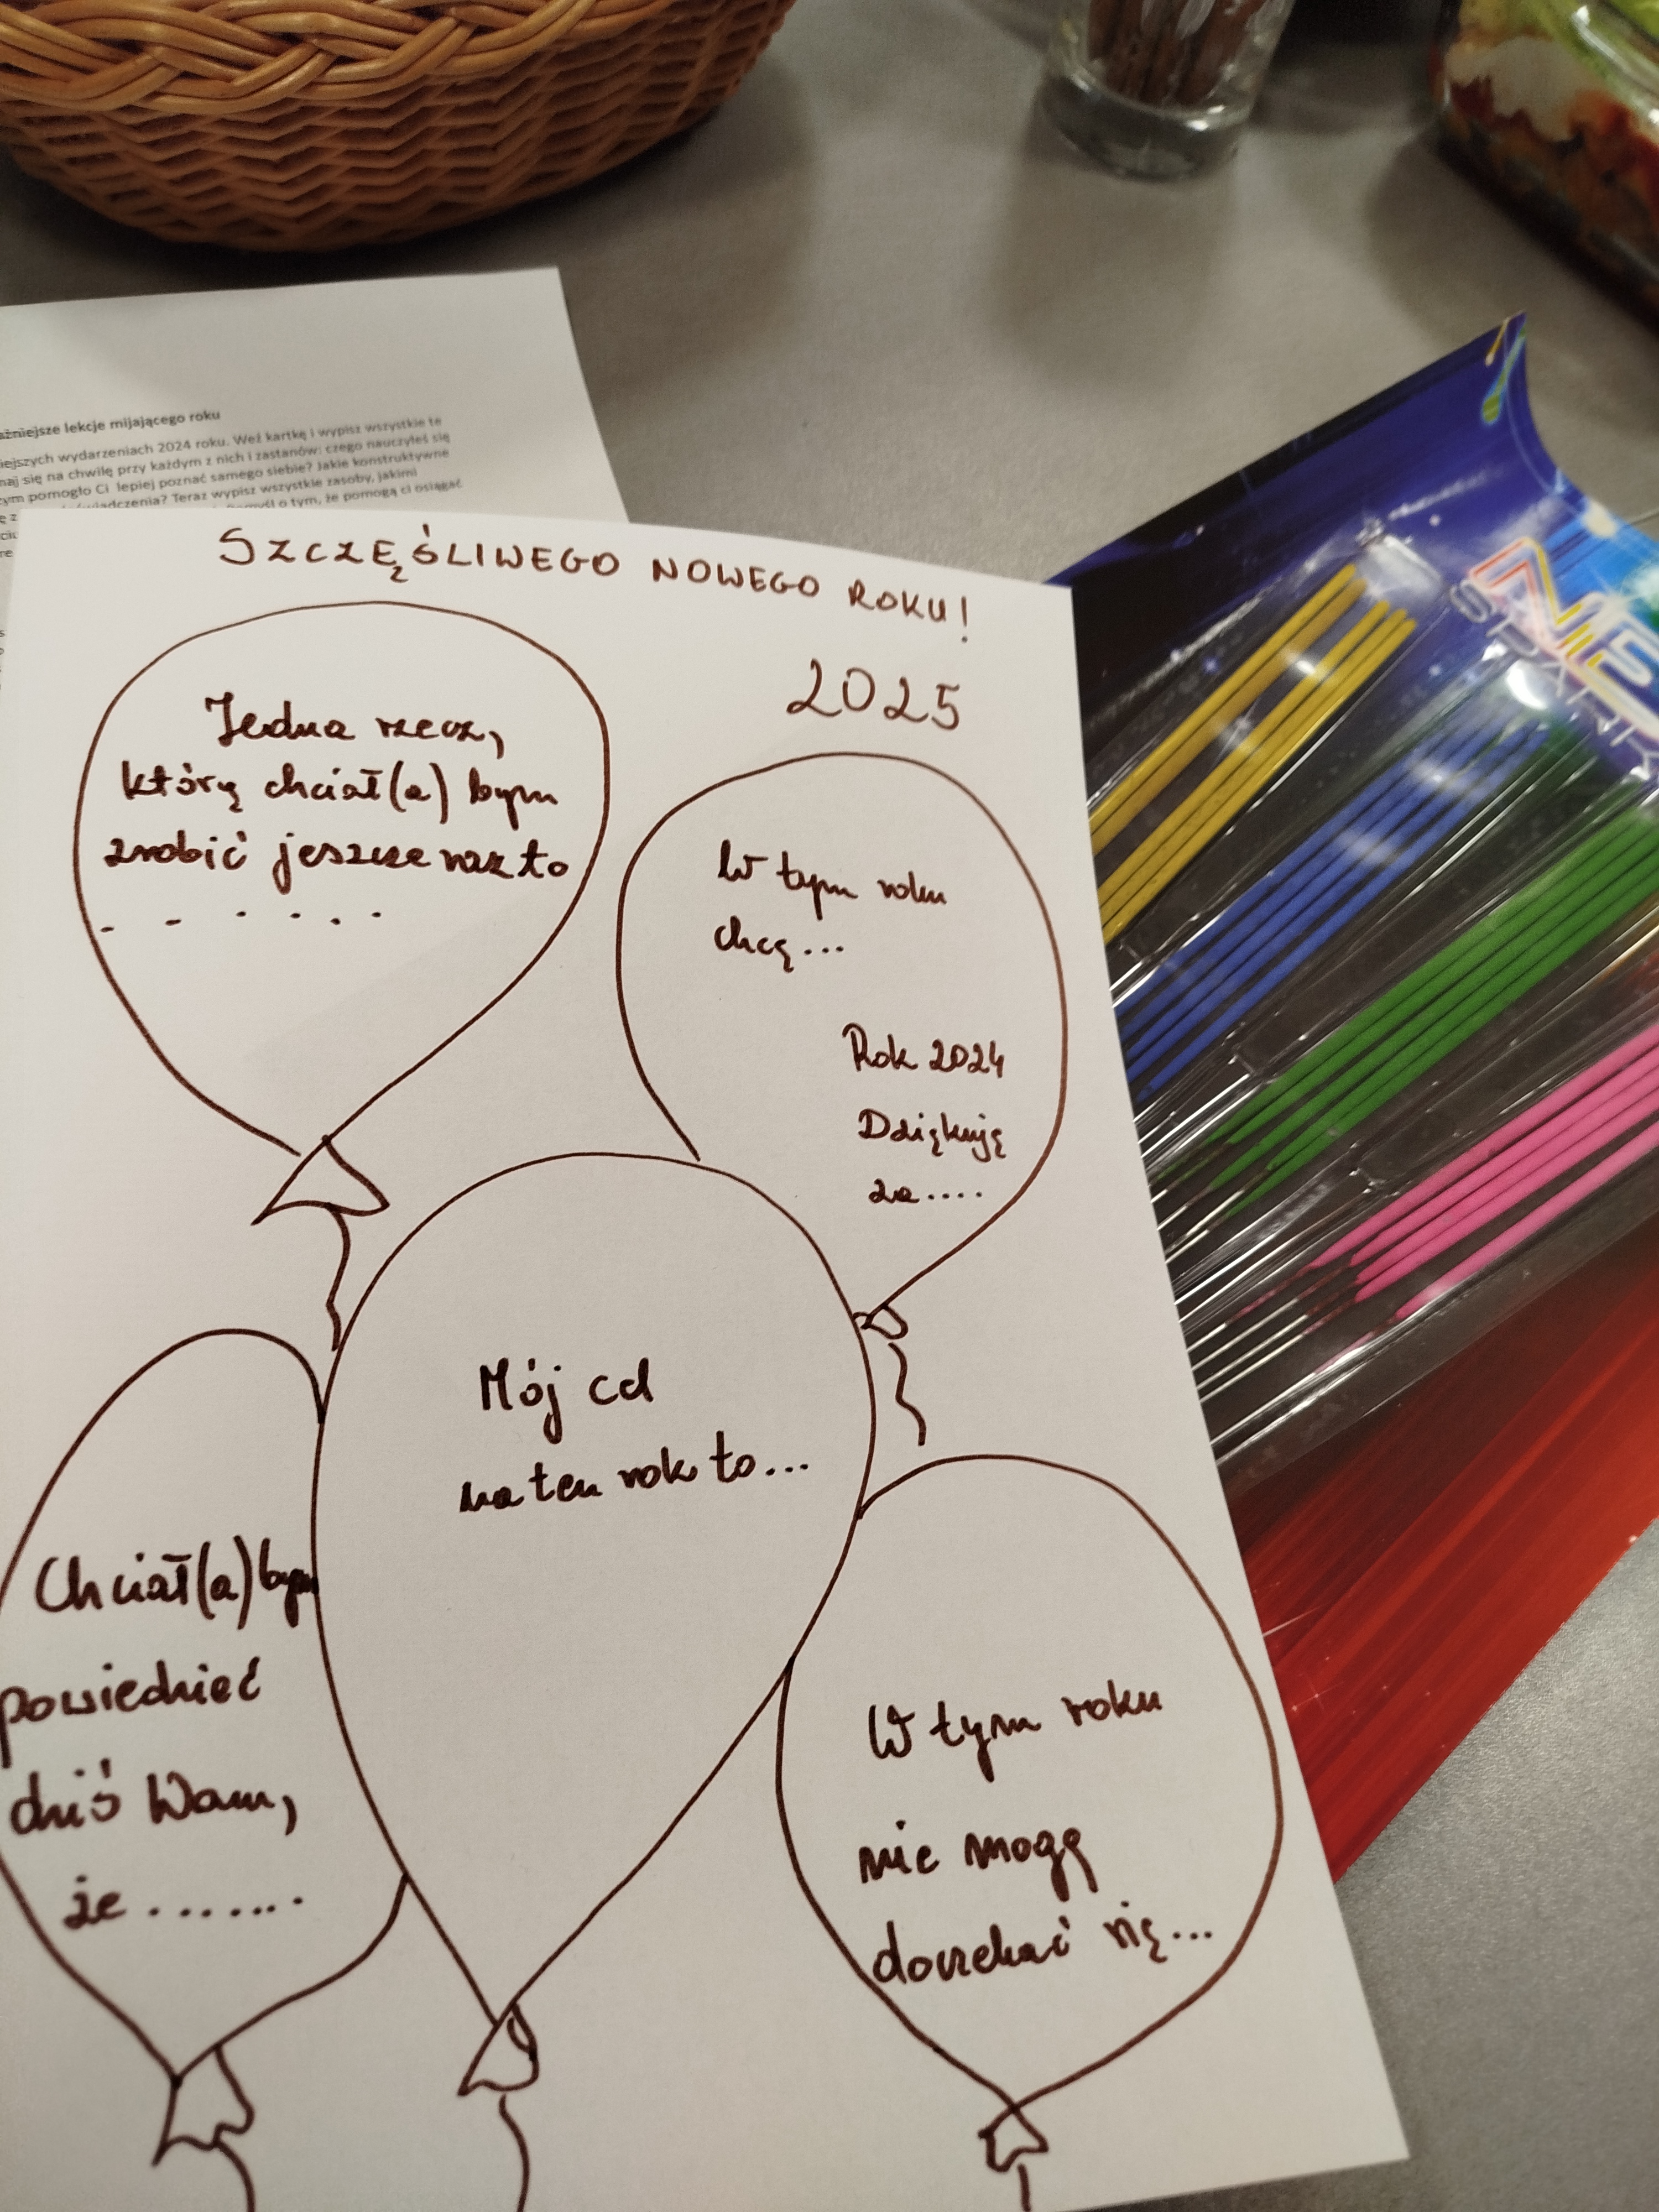 lekcje mijającego roku
wydarzeniach 2024 roku. Weź kartkę i wypisz wszystkie te
się na chwilę przy każdym z nich i zastanów: czego nauczyłeś się
pomogło Ci lepiej poznać samego siebie? Jakie konstruktywne
Teraz wypisz wszystkie zasoby, jakimi
o tym, że pomogą ci osiągać
SZCZĘŚLIWEGO NOWEGO ROKU!
2025
Jedna rzecz,
którą chciał(a) bym
zrobić jeszcze raz to
. . . . . .
W tym roku
chcę...
Rok 2024
Dziękuję
za....
Mój cel
na ten rok to...
Chciał(a) bym
powiedzieć
dziś Wam,
że .......
W tym roku
nie mogę
doczekać się...